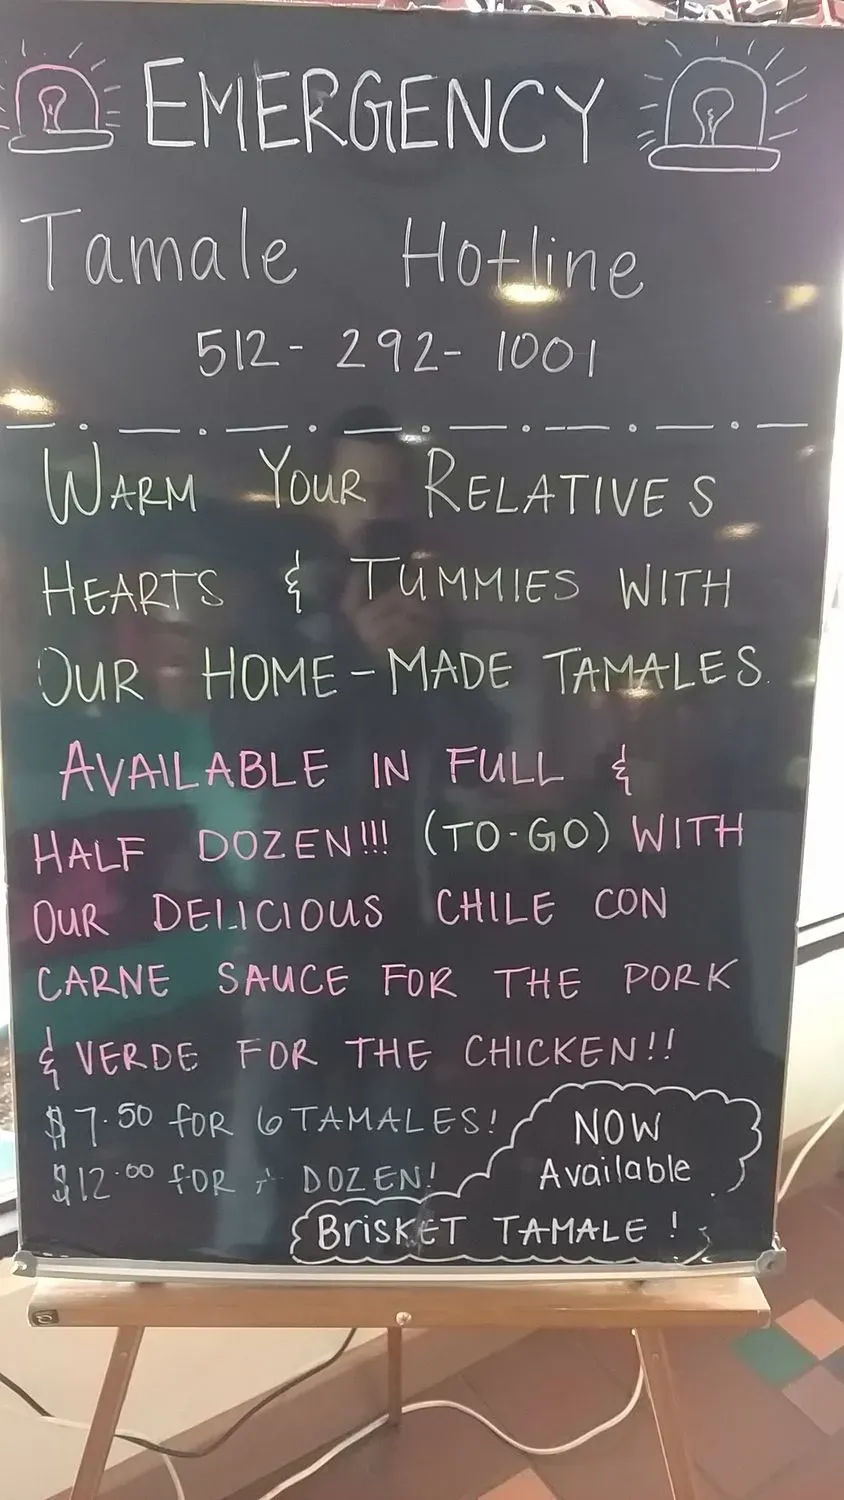 EMERGENCY
Tamale Hotline
512-292-1001
WARM YOUR RELATIVES
HEARTS & TUMMIES WITH
OUR HOME-MADE TAMALES.
AVAILABLE IN FULL &
HALF DOZEN!!! (TO-GO) WITH
OUR DELICIOUS CHILE CON
CARNE SAUCE FOR THE PORK
& VERDE FOR THE CHICKEN!!
$7.50 FOR 6 TAMALES!
$12.00 FOR DOZEN!
NOW
Available
BRISKET TAMALE!